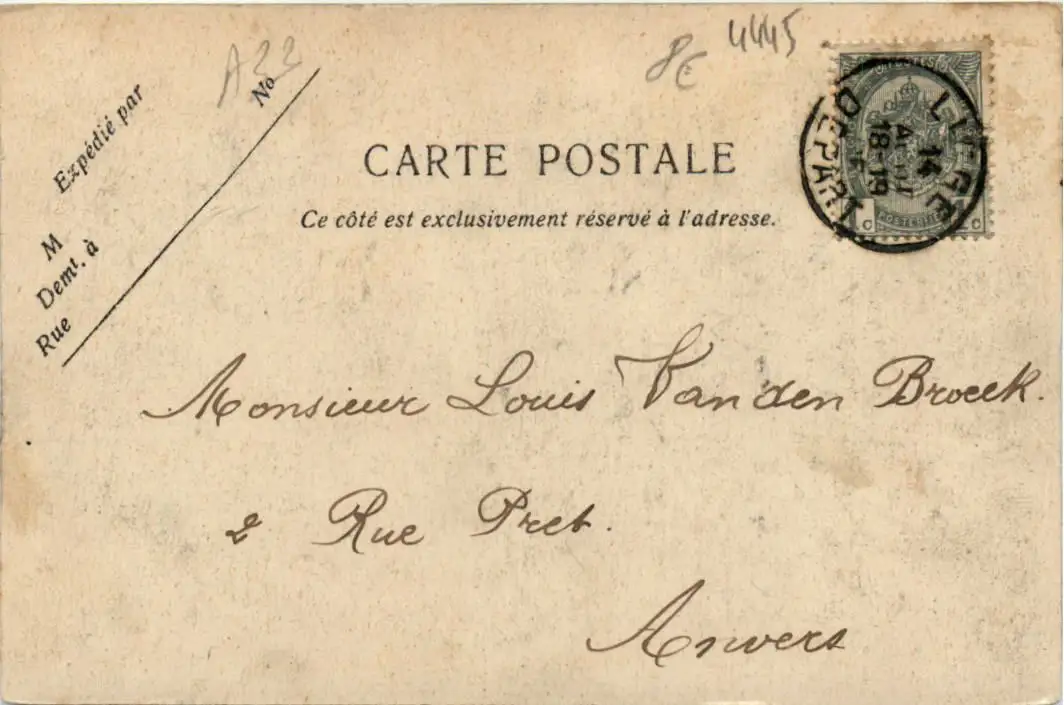 A22
8€
4445
Expédié par
No
M
Demt. à
Rue
CARTE POSTALE
Ce côté est exclusivement réservé à l'adresse.
LIEGE
14
18-19
DEPART
POSTERIJEN
1 c 1 c
Monsieur Louis Van den Broeck.
2 Rue Pret.
Anvers